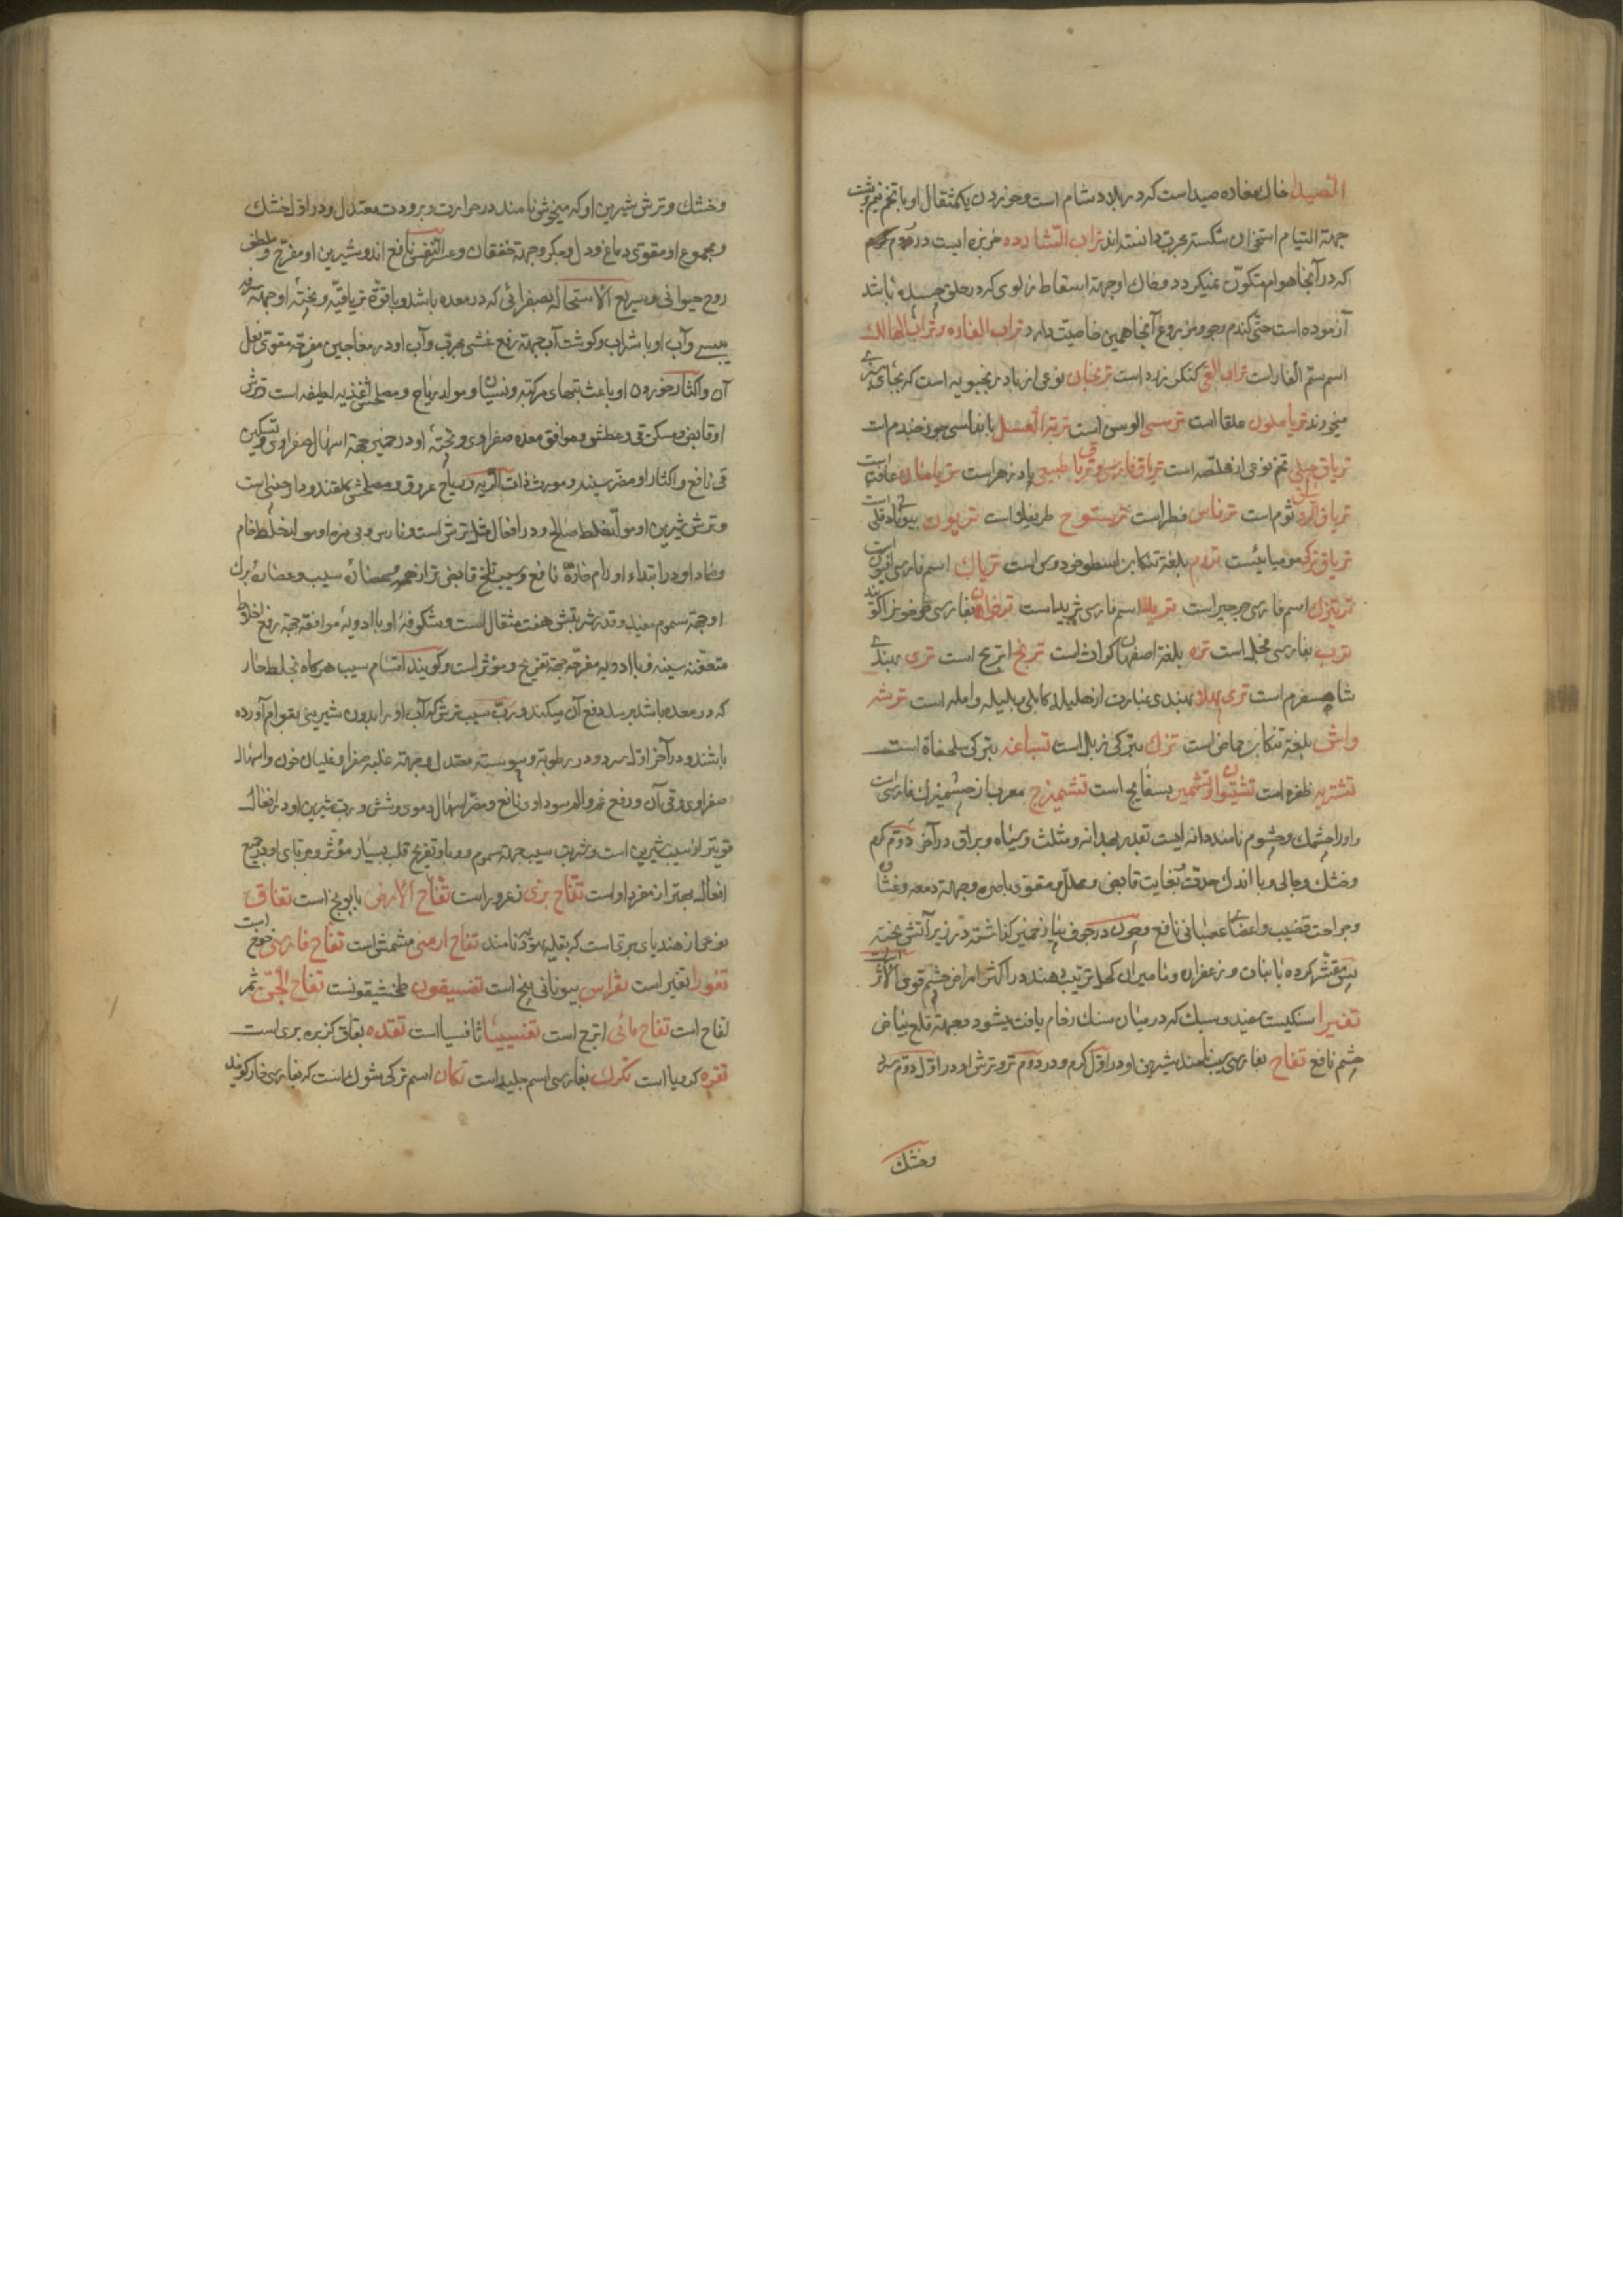 الصیدا خاک مغاره صیداست که در بلاد شام است و خوردن یکمثقال او با تخم نیم برشت
جهة التیام استخوان شکسته مجرب دانسته اند تراب الشارده جزیره ایست در دوم
که در آنجا هوام متکوّن نمیکردد و خاک او جهة اسقاط زلوی که در حلق چسپیده باشد
آزموده است حتّی کندم و جو و مزروع آنجا همین خاصیّت دارد تراب الفاره و تراب الهالک
اسم سمّ الفار است تراب القی کنکرزد است ترنجان نوعی از بادرنجبویه است که بجای سبزی
میخورند تریاملون علقا است ترسی الوسن است
تریاق جبلی تخم نوعی از مخلّصه است تریاق فارسی و تریاق طبیعی پادزهر است
ثوم است ترفاس فطر است تریستوج طریفلن است تریون بیونانی قلی است
تریاق ترکی مومیائیست تروم بلغة تنکابن اسطوخودوس است تریاک اسم فارسی افیون است
ترتیزک اسم فارسی جرجیر است ترید اسم فارسی ثرید است ترخوان بفارسی طرخون را کویند
ترب بفارسی فجل است تره بلغة اصفهان کراث است ترنج اترج است تری بهندی
شاهسفرم است تری پهلا بهندی عبارت از هلیله کابلی و بلیله و امله است ترشه
واش بلغة تنکابن حماض است ترک بترکی زبل است تسباغه بترکی سلحفاة است
تشتریه ظفره است تشتیوان و تشمیر بسفایج است تشمیزج معرب از چشمیزک فارسی است
و او را چشمک و چشوم نامند دانه ایست بقدر بهدانه و مثلث و سیاه و براق در آخر دوّم کرم
و خشک و جالی و با اندک حدّت و بغایت قابض و محلّل و مقوّی باصره و جهة دمعه و غشاوه
و جراحت قضیب و اعضای عصبانی نافع و چون در جوف پیاز خمیر کذاشته در زیر آتش پخته
پس مقشّر کرده با نبات و زعفران و مامیران کحل ترتیب دهند در اکثر امراض چشم قوی الاثر است
تغیرا سنکیست سفید و سبک که در میان سنک رخام یافت میشود و جهة قلع بیاض
چشم نافع تفاح بفارسی سیب نامند شیرین او در اوّل کرم و در دوّم تر و ترش او در اوّل دوّم سرد
وخشک
وخشک و ترش شیرین او که میخوش نامند در حرارت و برودت معتدل و در اول خشک
و مجموع او مقوی دماغ و دل و جکر و جهة خفقان و عسر النفس نافع اند و شیرین او مفرّح و ملطف
روح حیوانی و سریع الاستحاله بصفرائی که در معده باشد و با قوّة تریاقیّه و پختهٔ او جهة سرفه
یبسی و آب او با شراب و کوشت آب جهة رفع غشی مجرب و آب او در معاجین مفرّحه مقوّی فعل
آن و اکثار خوردن او باعث تبهای مرکبه و نسیان و مولد ریاح و مصلحش اغذیه لطیفه است و ترش
او قابض و مسکن قی و عطش و موافق معده صفراوی و پختهٔ او در خمیر جهة اسهال صفراوی و تسکین
قی نافع و اکثار او مضر سینه و مورث ذات الریه و ریاح عروق و مصلحش کلقند و دارچینی است
و ترش شیرین او مولّد خلط صالح و در افعال مثل ترش است و نارس و بی مزه او مولد خلط خام
و ضماد او در ابتداء اورام حارّه نافع و سیب تلخ قابض تر از همه و عصارهٔ سیب و عصارهٔ برک
او جهة سموم مفید و قدر شربتش هفت مثقال است و شکوفهٔ او با ادویهٔ موافقه جهة رفع اخلاط
متعفّنه سینه و با ادویه مفرّحه جهة تفریح و مؤثر است و کویند اقسام سیب هرکاه بخلط حار
که در معده باشد برسد دفع آن میکند و ربّ سیب ترش که آب او را بدون شیرینی بقوام آورده
باشند در آخر اوّل سرد و در رطوبة و یبوست معتدل و جهة غلبه صفرا و غلیان خون و اسهال
صفراوی و قی آن و رفع غم و الم سوداوی نافع و مضر اسهال دموی و شش و ربّ شیرین او در افعال
قویتر از سیب شیرین است و شربت سیب جهة سموم و وبا و تفریح قلب بسیار مؤثر و مربّای او در جمیع
افعال بهتر از مفرد او است تفّاح بری زعرور است تفّاح الارض بابونج است تفاق
نوعی از هندبای بری است که بقله یهودیّه نامند تفاح ارمنی مشمش است تفاح فارسی خوخ است
تفورا تفیر است تفراس بیونانی ینج است تفسیقون طخشیقونست تفاح الجنّ ثمر
لفاح است تفاح مائی اترج است تفسیسیا ثافسیا است تقده بقاف کزبره بری است
تقره کرویا است تکرک بفارسی اسم جلید است تکان اسم ترکی شوک است که بفارسی خار کویند